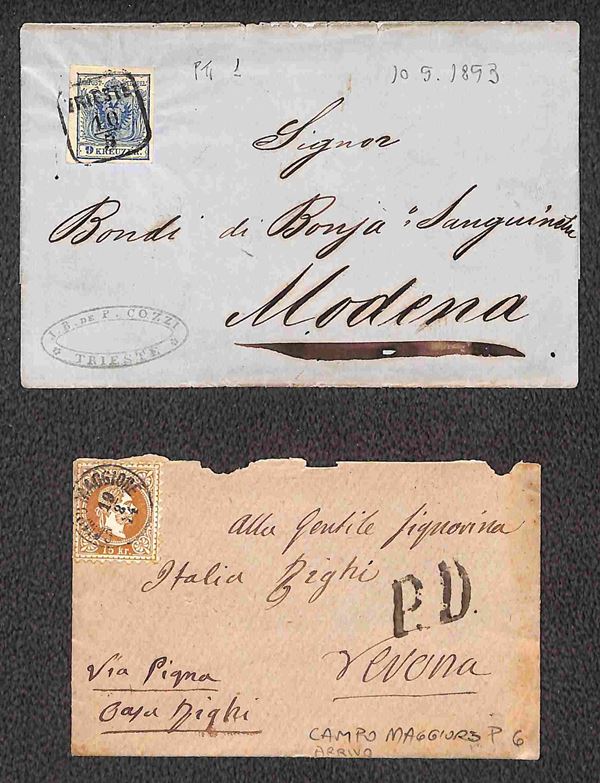 TRIESTE
10
5
9 KREUZER
10 5. 1853
Signor
Bondi di Bonja Sanguinetti
Modena
J. B. DE P. COZZI
TRIESTE
MAGGIORE
19
8
15 kr.
Alla Gentile Signorina
Italia Righi
P.D.
Verona
Via Pigna
Casa Righi
CAMPO MAGGIORE P 6
ARRIVO